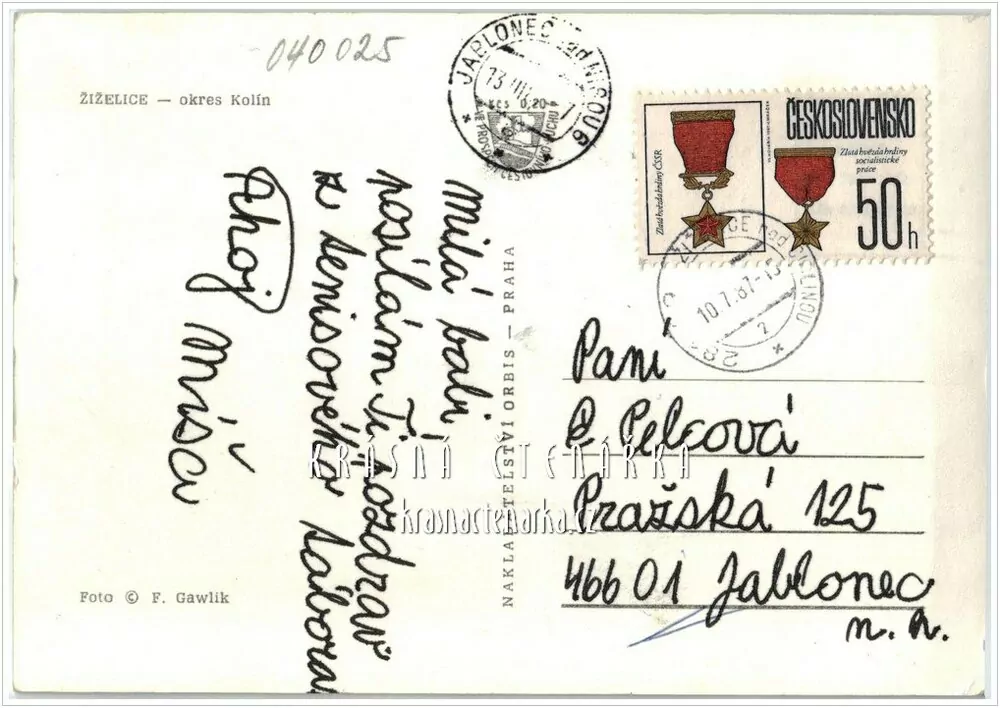 040025
ŽIŽELICE — okres Kolín
JABLONEC nad NISOU 6
13.VII.
Kčs 0,20
ČESKOSLOVENSKO
Zlatá hvězda hrdiny ČSSR
Zlatá hvězda hrdiny
socialistické
práce
50h
ŽIŽELICE nad CIDLINOU
10.7.87-15
Milá babi,
posílám Ti pozdrav
z tenisového tábora
Ahoj
Míša
NAKLADATELSTVÍ ORBIS — PRAHA
Paní
Pelcová
Pražská 125
46601 Jablonec
n. N.
KRÁSNÁ ČTENÁŘKA
krasnactenarka.cz
Foto © F. Gawlik